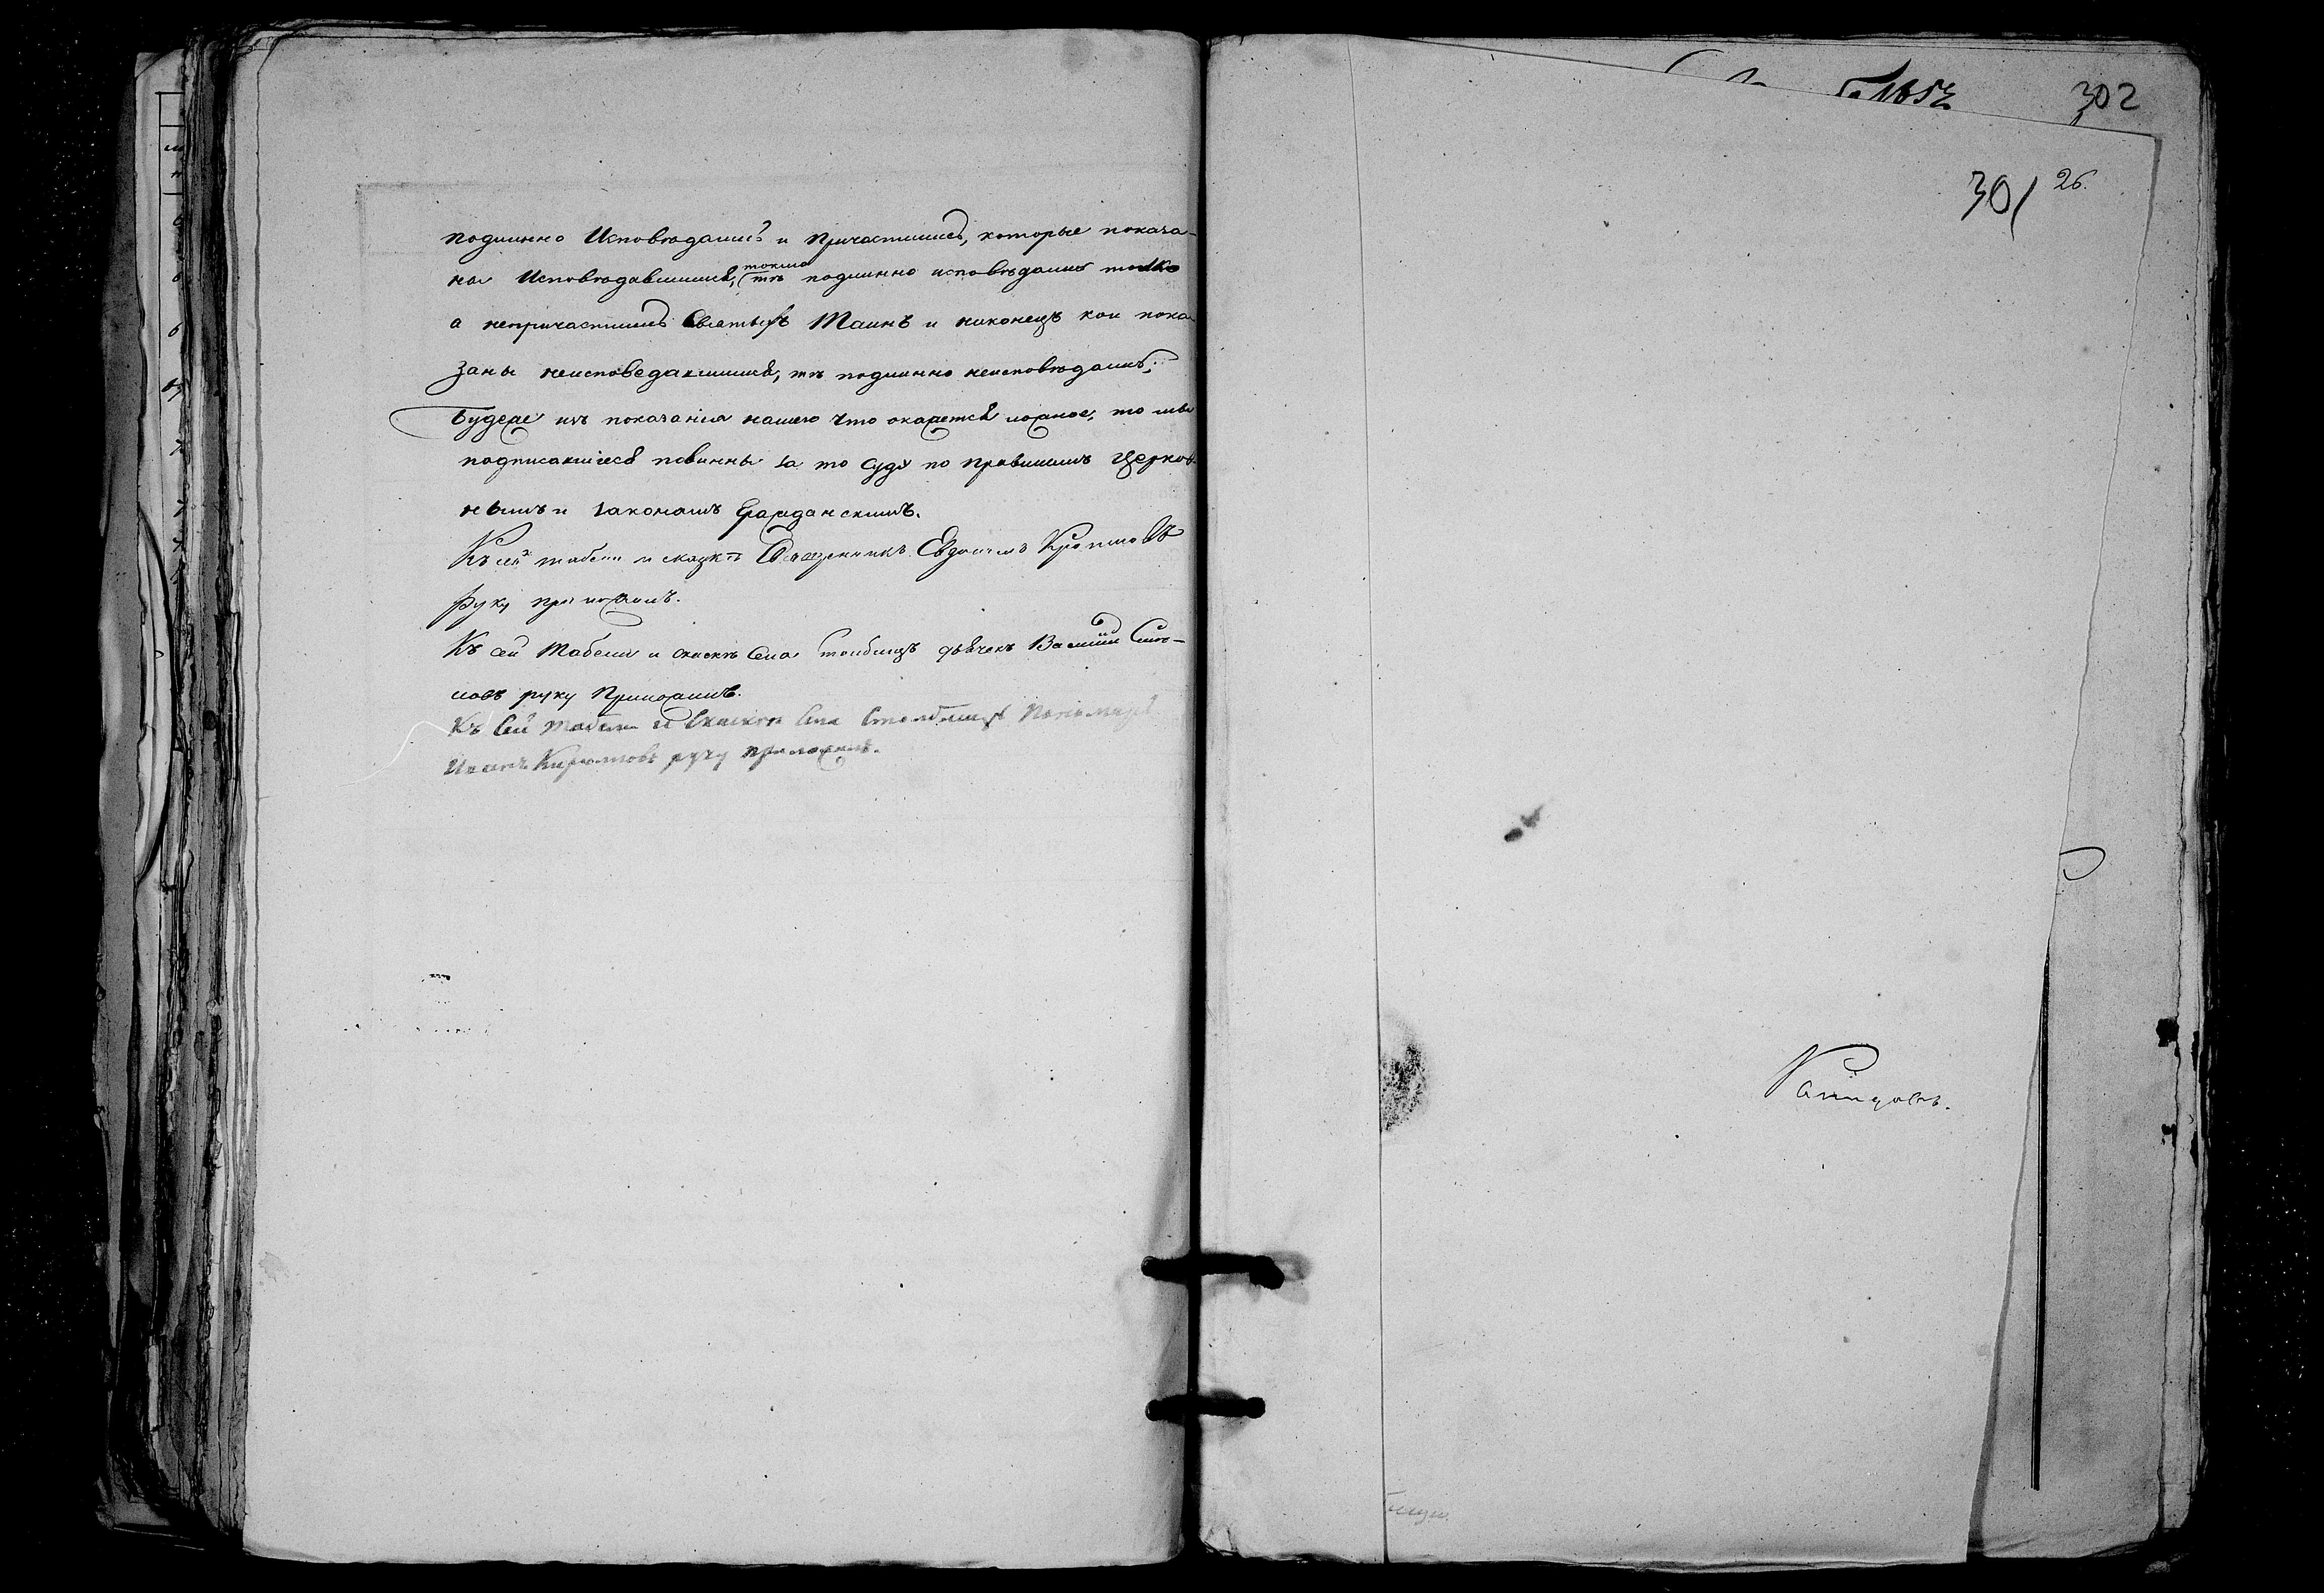 подлинно Исповѣдались и Причастились, которые показа-
ны Исповѣдавшимися, токмо тѣ подлинно исповѣдались только
а непричастились Святыхъ Таинъ и наконецъ кои пока-
заны неисповедавшимися, тѣ подлинно неисповѣдались;
Будеже изъ показанія нашего что окажется ложное, то мы
подписавшіеся повинны за то суду по правиламъ Церков-
нымъ и законамъ Гражданскимъ.
Къ сей табели и сказкѣ Священникъ Евдокимъ
руку приложилъ.
Къ сей Табели и скаскѣ Села Столбищъ дьячекъ Василій
руку Приложилъ.
Къ Сей Табели и Скаскѣ Села Столбищъ Пономарь
Иванъ Кириловъ руку приложилъ.
1852
302
301
26.